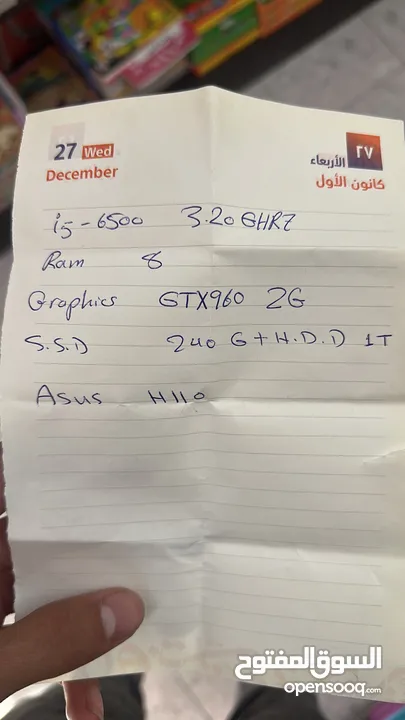 27 Wed
December
٢٧ الأربعاء
كانون الأول
i5-6500 3.20 GHRZ
Ram 8
Graphics GTX960 2G
S.S.D 240 G + H.D.D 1T
Asus H110
السوق المفتوح
opensooq.com